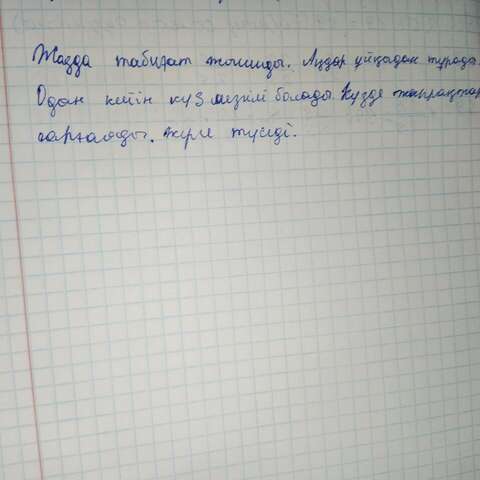 Жазда табиғат жасылды. Аңдар ұйқыдан тұрады.
Одан кейін күз мезгілі болады. Күзде жапырақтар
сарғаяды. жерге түседі.